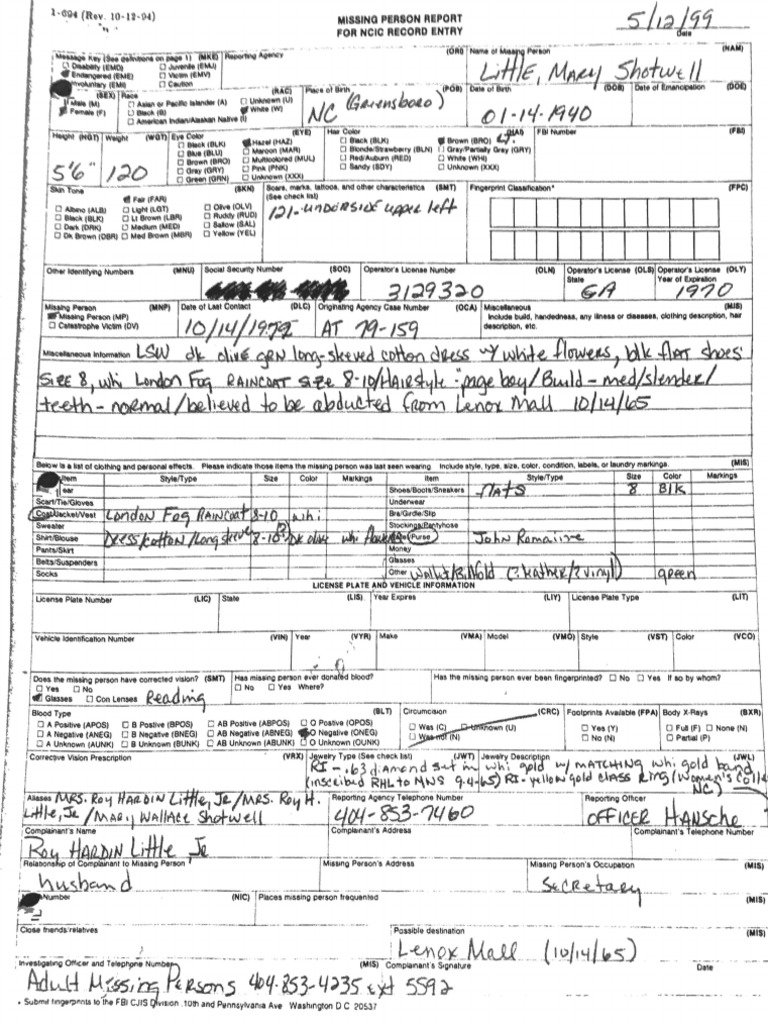 1-694 (Rev. 10-12-94)
MISSING PERSON REPORT
FOR NCIC RECORD ENTRY
5/12/99
Date
Message Key (See definitions on page 1) (MKE) Reporting Agency (ORI) Name of Missing Person (NAM)
☐ Disability (EMD) ☐ Juvenile (EMJ)
Endangered (EME) ☐ Victim (EMV)
Involuntary (EMI) ☐ Caution
Little, Mary Shotwell
(SEX) Race (RAC) Place of Birth (POB) Date of Birth (DOB) Date of Emancipation (DOE)
Male (M) ☐ Asian or Pacific Islander (A) ☐ Unknown (U)
Female (F) ☐ Black (B) White (W)
☐ American Indian/Alaskan Native (I)
NC (Greensboro) 01-14-1940
Height (HGT) Weight (WGT) Eye Color (EYE) Hair Color (HAI) FBI Number (FBI)
☐ Black (BLK) Hazel (HAZ) ☐ Black (BLK) Brown (BRO)
☐ Blue (BLU) ☐ Maroon (MAR) ☐ Blonde/Strawberry (BLN) ☐ Gray/Partially Gray (GRY)
☐ Brown (BRO) ☐ Multicolored (MUL) ☐ Red/Auburn (RED) ☐ White (WHI)
☐ Gray (GRY) ☐ Pink (PNK) ☐ Sandy (SDY) ☐ Unknown (XXX)
☐ Green (GRN) ☐ Unknown (XXX)
5'6" 120
Skin Tone (SKN) Scars, marks, tattoos, and other characteristics (SMT) Fingerprint Classification* (FPC)
(See check list)
Fair (FAR)
☐ Albino (ALB) ☐ Light (LGT) ☐ Olive (OLV)
☐ Black (BLK) ☐ Lt Brown (LBR) ☐ Ruddy (RUD)
☐ Dark (DRK) ☐ Medium (MED) ☐ Sallow (SAL)
☐ Dk Brown (DBR) ☐ Med Brown (MBR) ☐ Yellow (YEL)
121-underside upper left
Other Identifying Numbers (MNU) Social Security Number (SOC) Operator's License Number (OLN) Operator's License State (OLS) Operator's License Year of Expiration (OLY)
3129320 GA 1970
Missing Person (MNP) Date of Last Contact (DLC) Originating Agency Case Number (OCA) Miscellaneous (MIS)
Missing Person (MP)
☐ Catastrophe Victim (DV)
Include build, handedness, any illness or diseases, clothing description, hair description, etc.
AT 79-159
Miscellaneous Information LSW dk olive grn long-sleeved cotton dress w/ white flowers, blk flat shoes
size 8, whi London Fog raincoat size 8-10/Hairstyle-"page boy/Build-med/slender/
teeth-normal/believed to be abducted from Lenox Mall 10/14/65
Below is a list of clothing and personal effects. Please indicate those items the missing person was last seen wearing. Include style, type, size, color, condition, labels, or laundry markings. (MIS)
Item Style/Type Size Color Markings Item Style/Type Size Color Markings
Shoes/Boots/Sneakers flats 8 Blk
Scarf/Tie/Gloves Underwear
Coat/Jacket/Vest London Fog Raincoat 8-10 whi Bra/Girdle/Slip
Sweater Stockings/Pantyhose
Shirt/Blouse Dress/cotton/Long sleeve 8-10 Dk olive whi Purse John Romaine
Pants/Skirt Money
Belts/Suspenders Glasses
Socks Other Wallet/Billfold (?leather/?vinyl) green
LICENSE PLATE AND VEHICLE INFORMATION
License Plate Number (LIC) State (LIS) Year Expires (LIY) License Plate Type (LIT)
Vehicle Identification Number (VIN) Year (VYR) Make (VMA) Model (VMO) Style (VST) Color (VCO)
Does the missing person have corrected vision? (SMT) Has missing person ever donated blood? Has the missing person ever been fingerprinted? ☐ No ☐ Yes If so by whom?
☐ Yes ☐ No ☐ No ☐ Yes Where?
Glasses ☐ Con Lenses Reading
Blood Type (BLT) Circumcision (CRC) Footprints Available (FPA) Body X-Rays (BXR)
☐ A Positive (APOS) ☐ B Positive (BPOS) ☐ AB Positive (ABPOS) ☐ O Positive (OPOS) ☐ Was (C) ☐ Unknown (U) ☐ Yes (Y) ☐ Full (F) ☐ None (N)
☐ A Negative (ANEG) ☐ B Negative (BNEG) ☐ AB Negative (ABNEG) O Negative (ONEG) ☐ Was not (N) ☐ No (N) ☐ Partial (P)
☐ A Unknown (AUNK) ☐ B Unknown (BUNK) ☐ AB Unknown (ABUNK) ☐ O Unknown (OUNK)
Corrective Vision Prescription (VRX) Jewelry Type (See check list) (JWT) Jewelry Description (JWL)
RI-.63 diamond set in whi gold w/ matching whi gold band
(inscribed RHL to MWS 9-4-65) RI-yellow gold class ring (Women's Colle
NC)
Aliases Mrs. Roy Hardin Little, Jr/Mrs. Roy H. Reporting Agency Telephone Number Reporting Officer
Little, Jr/Mary Wallace Shotwell 404-853-7460 Officer Hansche
Complainant's Name Complainant's Address Complainant's Telephone Number
Roy Hardin Little Jr
Relationship of Complainant to Missing Person Missing Person's Address Missing Person's Occupation (MIS)
husband Secretary
Number (NIC) Places missing person frequented (MIS)
Close friends/relatives Possible destination (MIS)
Lenox Mall (10/14/65)
Investigating Officer and Telephone Number (MIS) Complainant's Signature Date
Adult Missing Persons 404-853-4235 ext 5592
• Submit fingerprints to the FBI CJIS Division 10th and Pennsylvania Ave Washington D C 20537